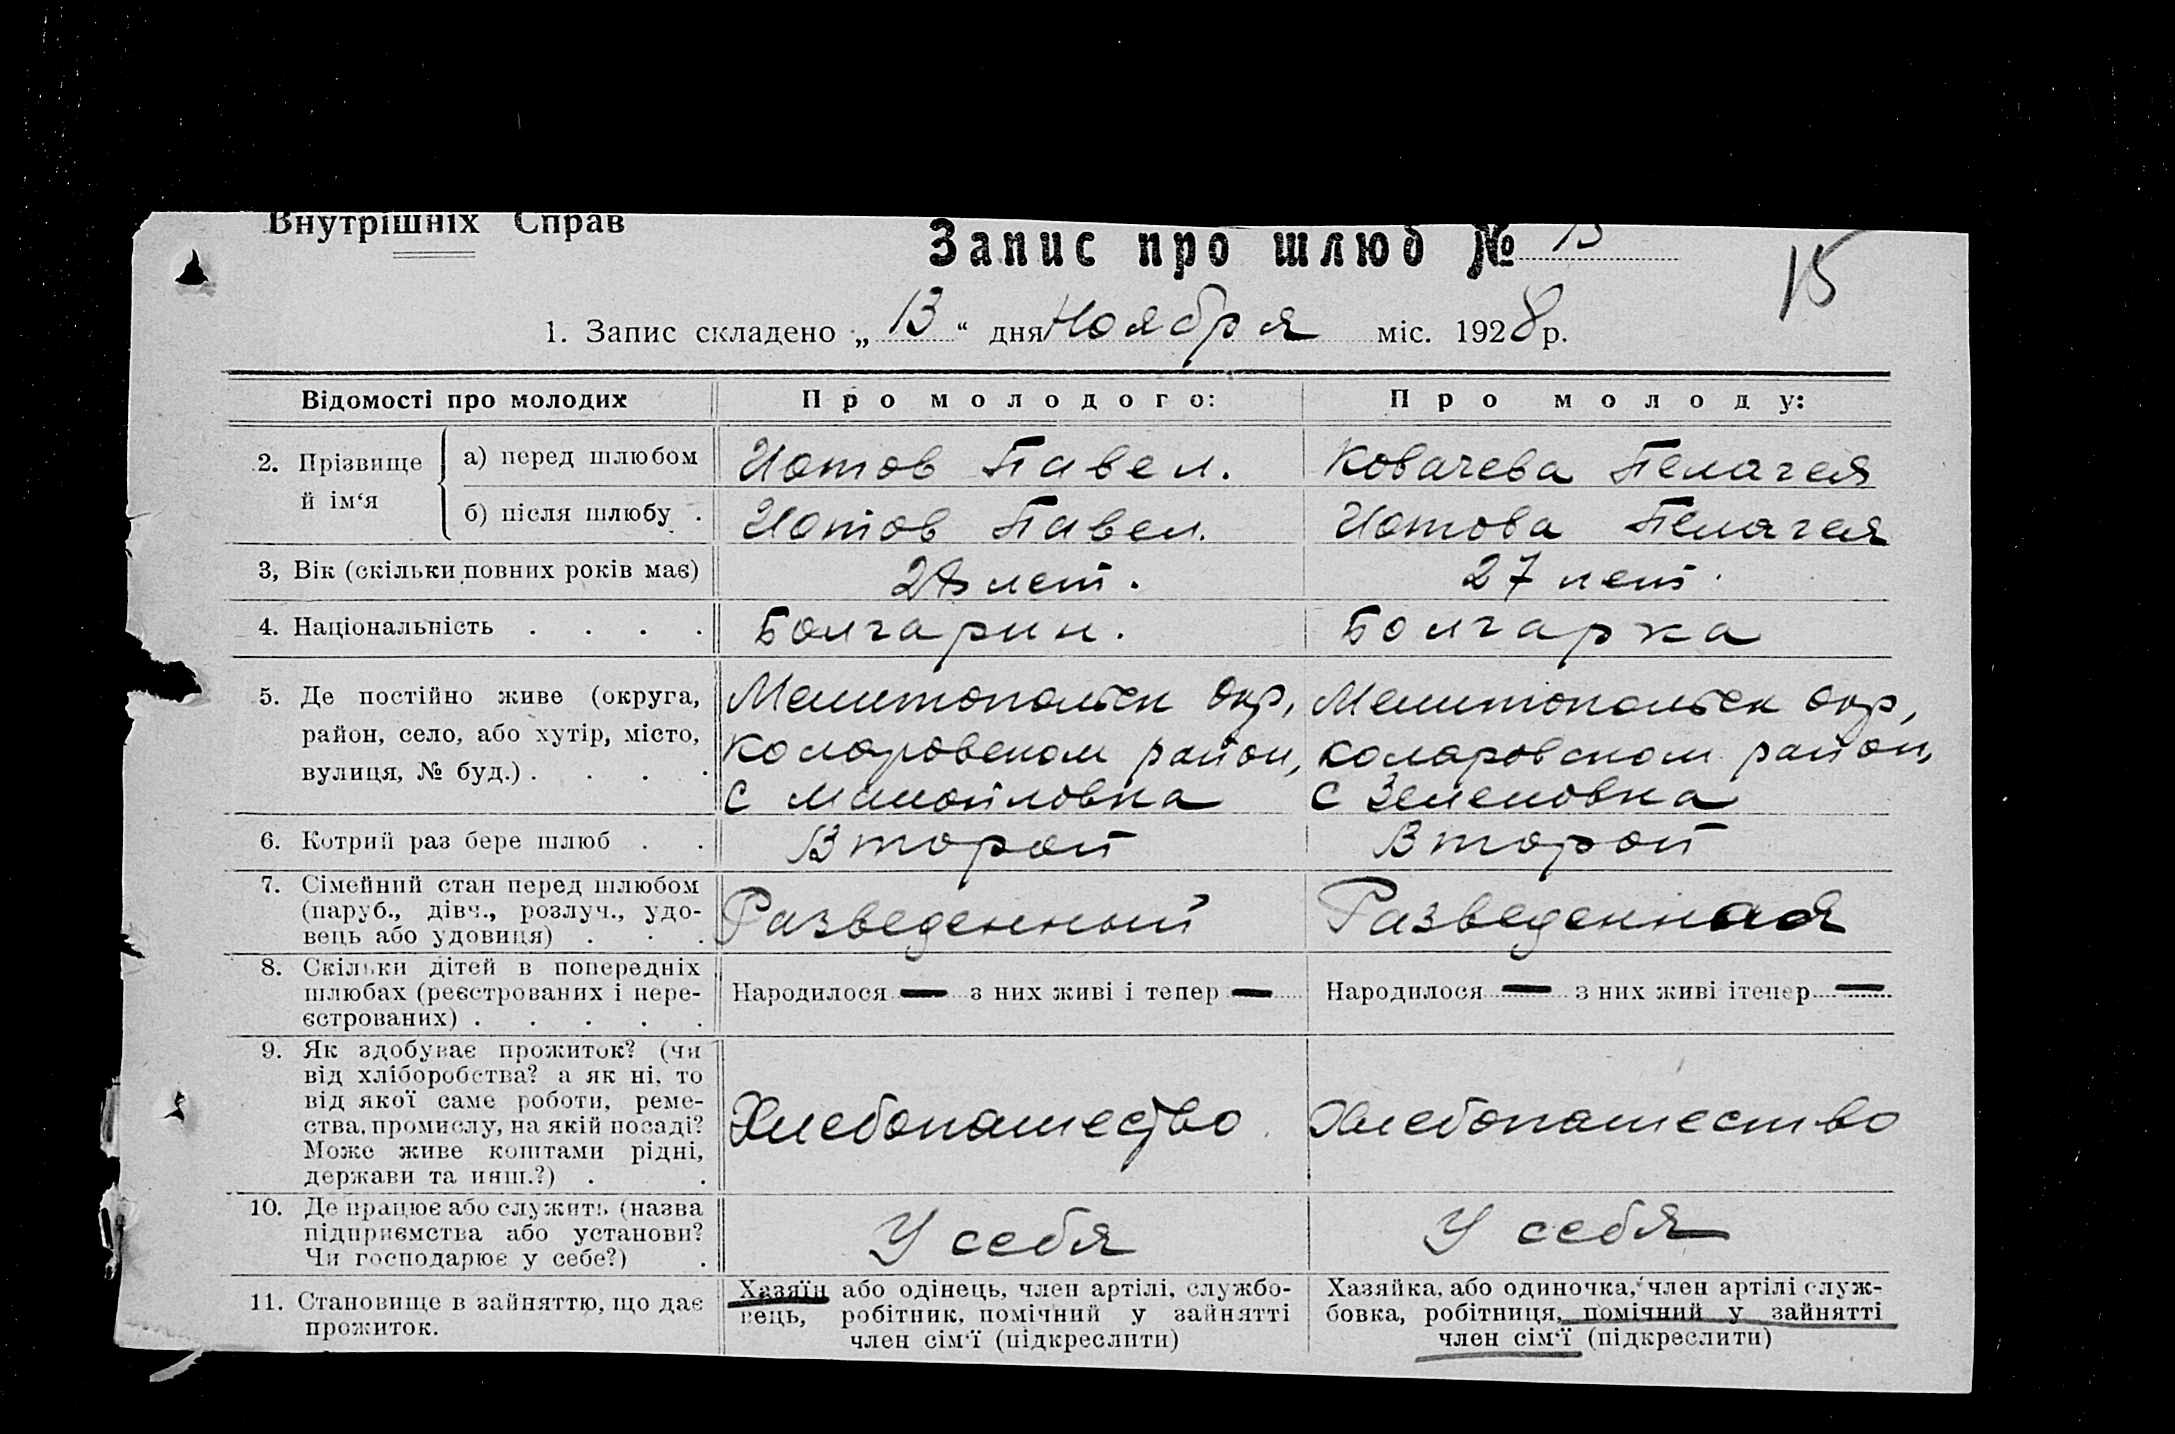 Внутрішніх Справ
Запис про шлюб №
15
1. Запис складено „ 13 “ дня Ноября міс. 1928 р.
Відомості про молодих Про молодого: Про молоду:
2. Прізвище й ім‘я
а) перед шлюбом Иотов Павел. Ковачева Пелагея
б) після шлюбу . Иотов Павел. Иотова Пелагея
3, Вік (скільки повних років має) лет. 27 лет.
4. Національність . . . . Болгарин. Болгарка
5. Де постійно живе (округа,
район, село, або хутір, місто,
вулиця, № буд.) . . . .
Мелитопольск Окр,
Коларовском район,
с Манойловка
Мелитопольск окр,
Коларовском район,
с Зеленовка
6. Котрий раз бере шлюб . . Второй Второй
7. Сімейний стан перед шлюбом
(паруб., дівч., розлуч., удо-
вець або удовиця) . . .
Разведенный Разведенная
8. Скільки дітей в попередніх
шлюбах (реєстрованих і нере-
єстрованих) . . . . .
Народилося — з них живі і тепер — Народилося — з них живі ітепер —
9. Як здобуває прожиток? (чи
від хліборобства? а як ні, то
від якої саме роботи, реме-
ства, промислу, на якій посаді?
Може живе коштами рідні,
держави та инш.?) . .
Хлебопашество Хлебопашество
10. Де працює або служить (назва
підприємства або установи?
Чи господарює у себе?) .
У себя У себя
11. Становище в зайняттю, що дає
прожиток.
Хазяїн або одінець, член артілі, службо-
вець, робітник, помічний у зайнятті
член сім‘ї (підкреслити)
Хазяйка, або одиночка, член артілі служ-
бовка, робітниця, помічний у зайнятті
член сім‘ї (підкреслити)